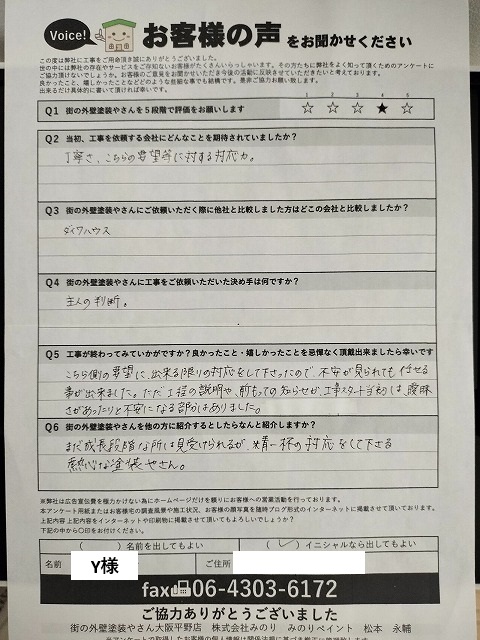 Voice! お客様の声 をお聞かせください
この度は弊社に工事をご用命頂き誠にありがとうございました。
世の中には弊社の存在やサービスをご存知ないお客様がたくさんいらっしゃいます。その方たちにも弊社をよく知って頂くためのアンケートに
ご協力頂けないでしょうか。お客様のご意見をお聞かせいただき今後の活動に反映させていただきたいと考えております。
良かったこと、嬉しかったことなどどのような些細な事でも結構です。是非ご協力お願い致します。
出来るだけ具体的に書いて頂ければ幸いです。
1 2 3 4 5
Q1 街の外壁塗装やさんを5段階で評価をお願いします ☆ ☆ ☆ ★ ☆
Q2 当初、工事を依頼する会社にどんなことを期待されていましたか?
丁寧さ、こちらの要望等に対する対応力。
Q3 街の外壁塗装やさんにご依頼いただく際に他社と比較しました方はどこの会社と比較しましたか?
ダイワハウス
Q4 街の外壁塗装やさんに工事をご依頼いただいた決め手は何ですか?
主人の判断。
Q5 工事が終わってみていかがですか?良かったこと・嬉しかったことを忌憚なく頂戴出来ましたら幸いです
こちら側の要望に、出来る限りの対応をして下さったので、不安が見られても任せる
事が出来ました。ただ工程の説明や、前もっての知らせが、工事スタート当初は、曖昧
さがあったりと不安になる部分はありました。
Q6 街の外壁塗装やさんを他の方に紹介するとしたらなんと紹介しますか?
まだ成長段階な所は見受けられるが、精一杯の対応をして下さる
熱心な塗装やさん。
※弊社は広告宣伝費を極力かけない為にホームページだけを頼りにお客様への営業活動を行っております。
本アンケート用紙またはお客様宅の調査風景や施工状況、お客様の顔写真を随時ブログ形式のインターネットに掲載させて頂いております。
上記内容上記内容をインターネットや印刷物に掲載させて頂いてもよろしいでしょうか?
下記の中から〇印をお付けください。
( )名前を出してもよい (✓)イニシャルなら出してもよい
名前 Y様 ご住所
fax 06-4303-6172
ご協力ありがとうございました
街の外壁塗装やさん大阪平野店 株式会社みのり みのりペイント 松本 永輔